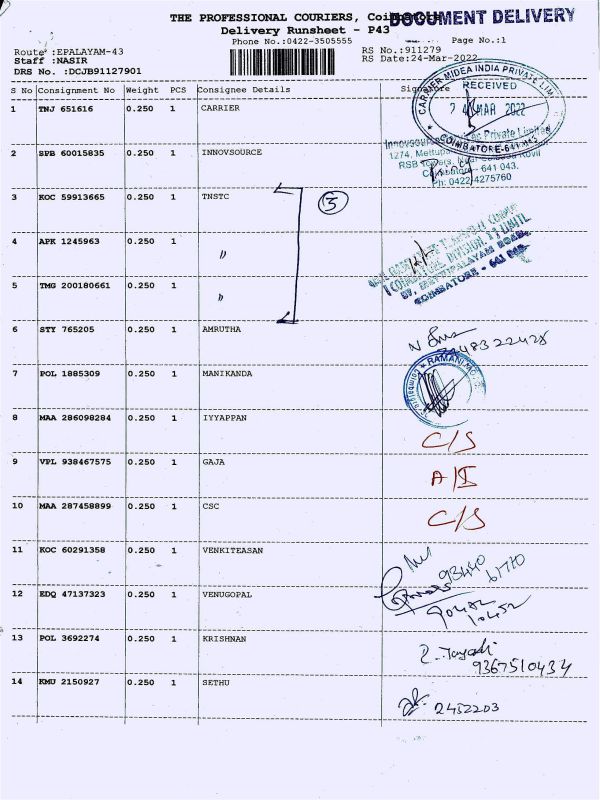 THE PROFESSIONAL COURIERS, Coimbatore
DOCUMENT DELIVERY
Delivery Runsheet - P43
Phone No.:0422-3505555
Page No.:1
Route :EPALAYAM-43
RS No.:911279
Staff :NASIR
RS Date:24-Mar-2022
DRS No. :DCJB91127901
S No Consignment No Weight PCS Consignee Details Signature
1 TNJ 651616 0.250 1 CARRIER
CARRIER MIDEA INDIA PRIVATE LIM
RECEIVED
24 MAR 2022
COIMBATORE-641
2 SPB 60015835 0.250 1 INNOVSOURCE
Private Limited
1274, Mettup
RSB Towers, Near Kovil
Coimbatore - 641 043.
Ph: 0422-4275760
3 KOC 59913665 0.250 1 TNSTC
3
4 APK 1245963 0.250 1 "
5 TMG 200180661 0.250 1 "
METTUPALAYAM ROAD,
COIMBATORE - 641
6 STY 765205 0.250 1 AMRUTHA
7 POL 1885309 0.250 1 MANIKANDA
8 MAA 286098284 0.250 1 IYYAPPAN
C/S
9 VPL 938467575 0.250 1 GAJA
A/I
10 MAA 287458899 0.250 1 CSC
C/S
11 KOC 60291358 0.250 1 VENKITEASAN
12 EDQ 47137323 0.250 1 VENUGOPAL
13 POL 3692274 0.250 1 KRISHNAN
9367510434
14 KMU 2150927 0.250 1 SETHU
2452203